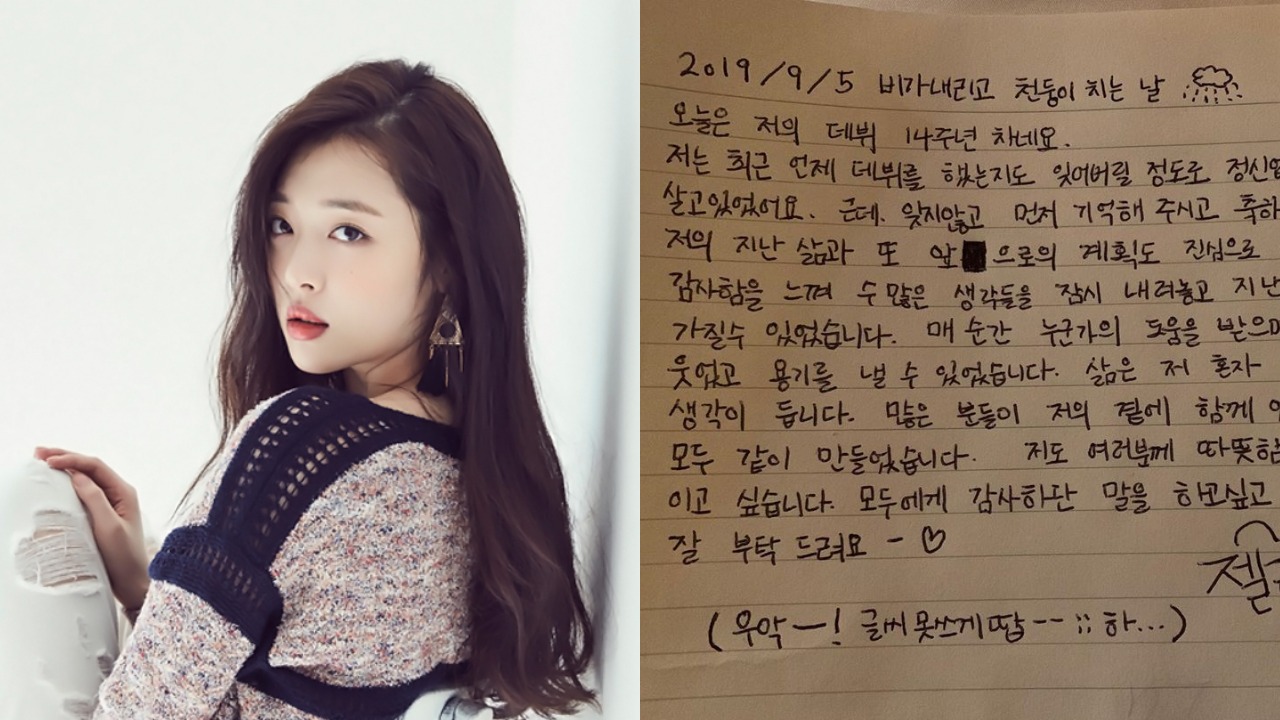 2019/9/5 비가내리고 천둥이 치는 날
오늘은 저의 데뷔 14주년 차네요.
저는 최근 언제 데뷔를 했는지도 잊어버릴 정도로
살고있었어요. 근데. 잊지않고 먼저 기억해 주시고
저의 지난 삶과 또 앞으로의 계획도 진심으로
감사함을 느껴 수많은 생각들을 잠시 내려놓고 지난
가질수 있었습니다. 매 순간 누군가의 도움을
웃었고 용기를 낼 수 있었습니다. 삶은 저 혼자
생각이 듭니다. 많은 분들이 저의 곁에 함께
모두 같이 만들었습니다. 저도 여러분께
이고 싶습니다. 모두에게 감사하단 말을 하고싶고
잘 부탁 드려요 - ♡
(우악ㅡ! 글씨 못쓰게땁 -- ;; 하...)